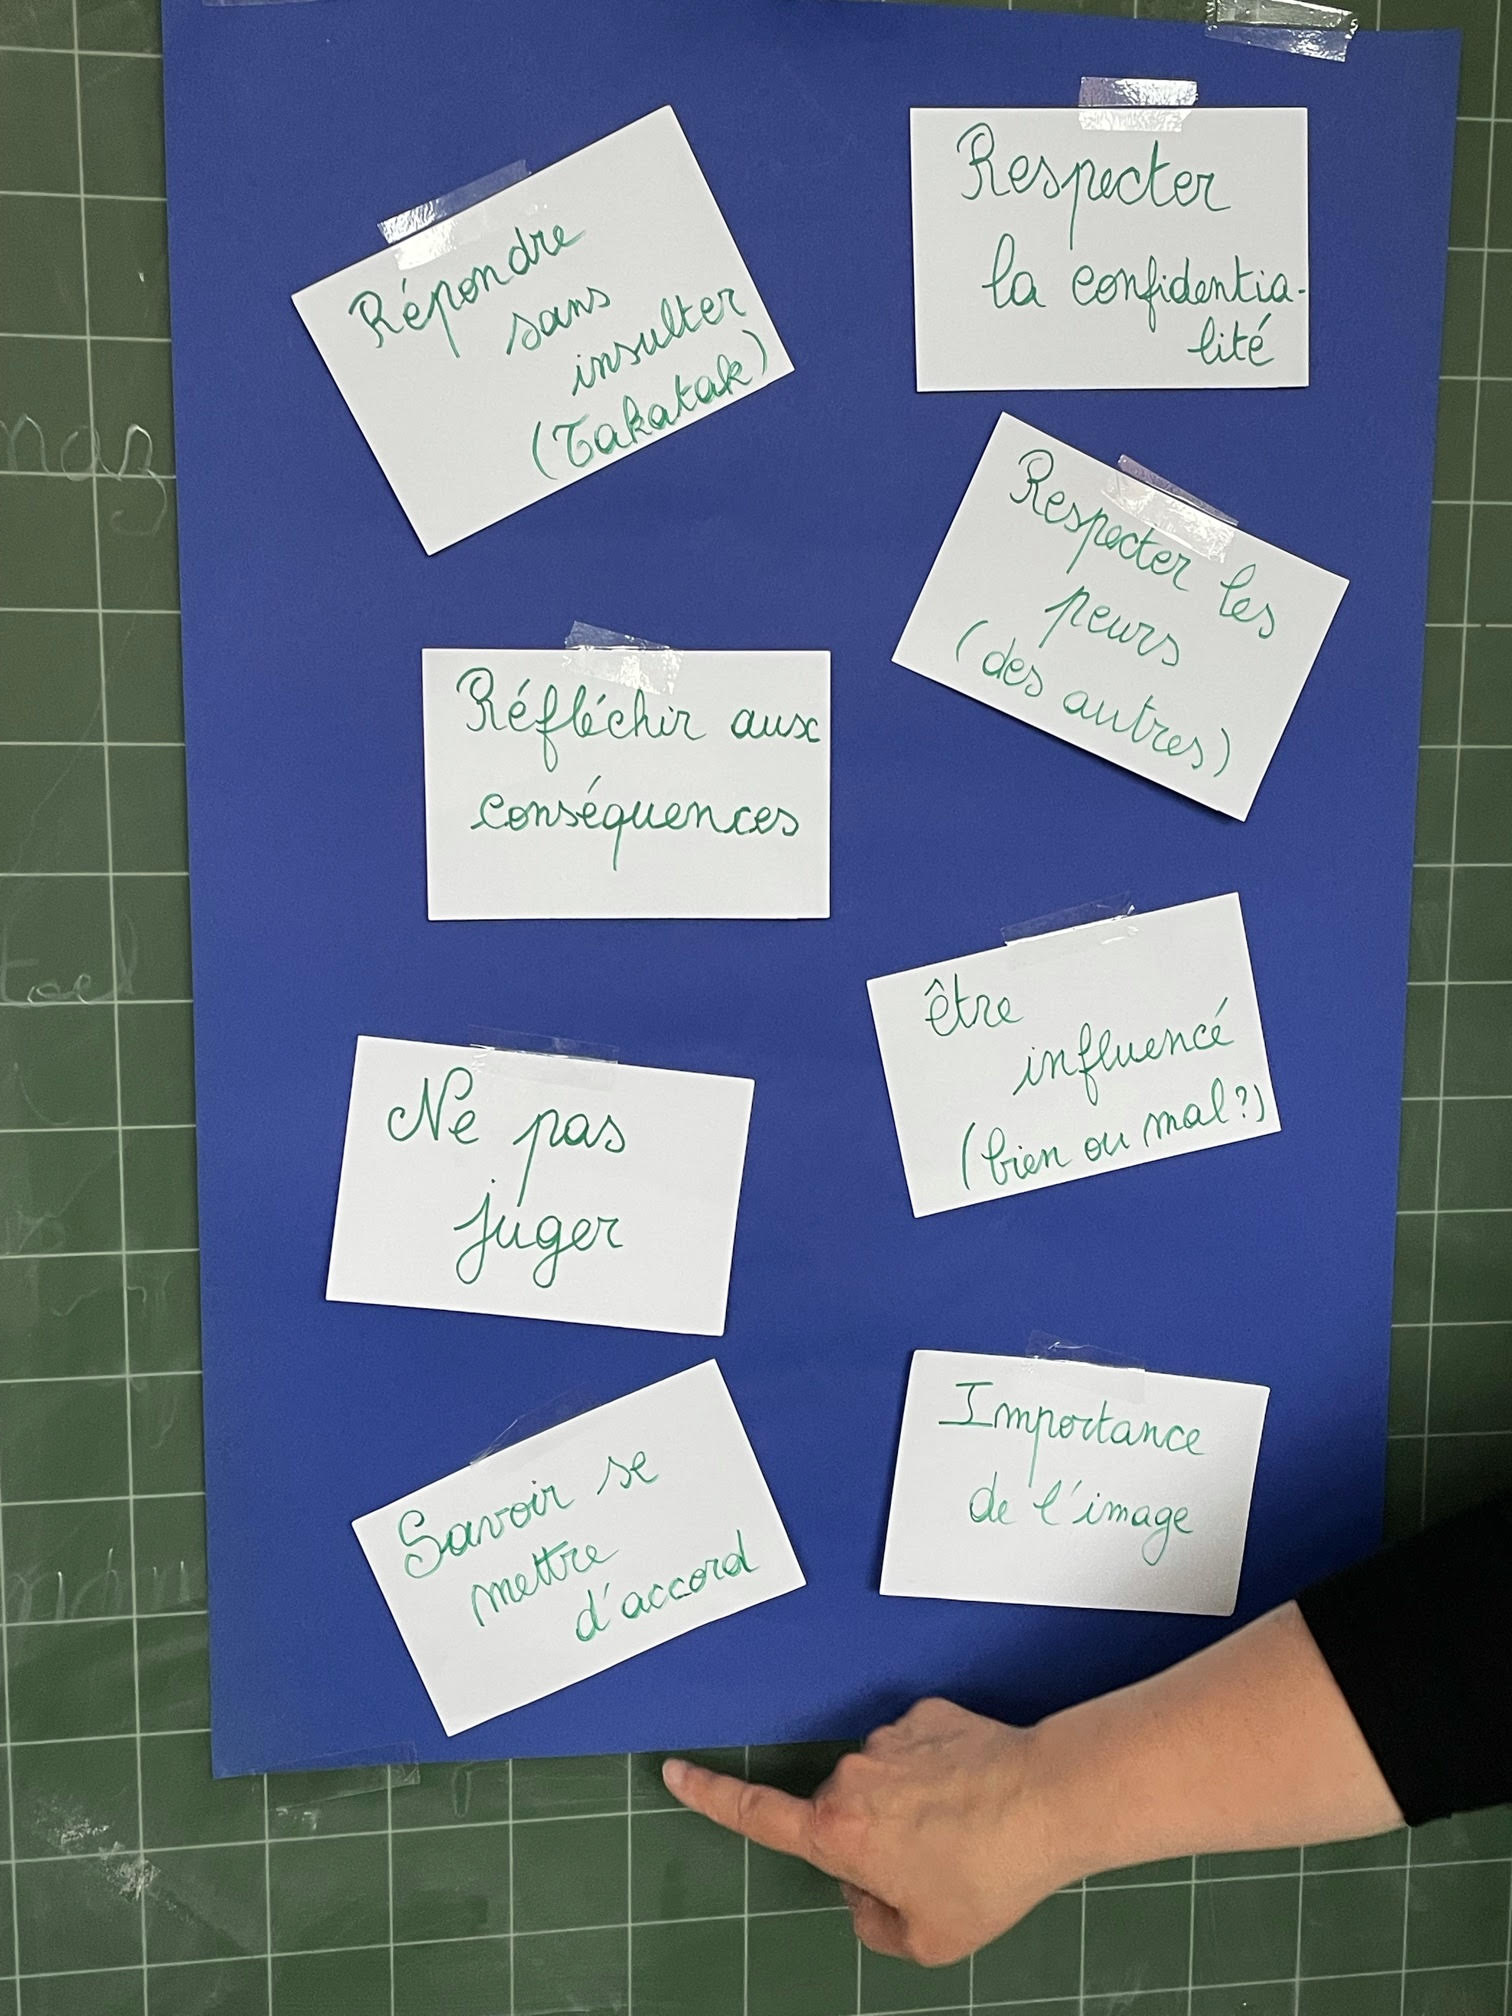 Répondre
sans
insulter
(Takatak)
Respecter
la confidentia-
lité
Respecter les
peurs
(des autres)
Réfléchir aux
conséquences
être
influencé
(bien ou mal?)
Ne pas
juger
Savoir se
mettre
d'accord
Importance
de l'image